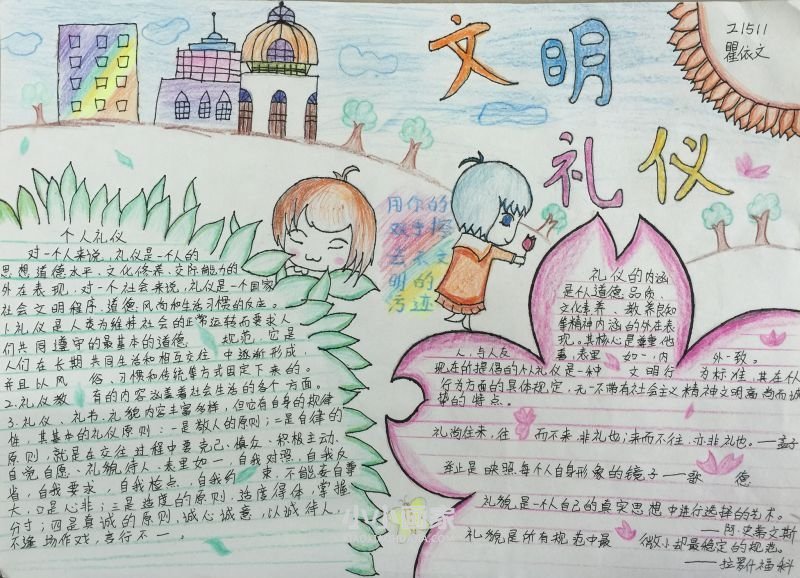 文明
礼仪
21511
瞿依文
用你的
双手擦
去文
明的
污迹
个人礼仪
对一个人来说,礼仪是一个人的
思想道德水平、文化修养、交际能力的
外在表现,对一个社会来说,礼仪是一个国家
社会文明程序、道德风尚和生活习惯的反应。
1.礼仪是人类为维持社会的正常运转而要求人
们共同遵守的最基本的道德 规范,它是
人们在长期共同生活和相互交往 中逐渐形成,
并且以风 俗、习惯和传统等方式固定下来的。
2.礼仪教 育的内容涵盖着社会生活的各个方面。
3.礼仪、礼节、礼貌内容丰富多样,但它有自身的规律
性,其基本的礼仪原则:一是敬人的原则;二是自律的
原则,就是在交往过程中要克己、慎众、积极主动、
自觉自愿、礼貌待人、表里如一,自我对照,自我反
省,自我要求,自我检点,自我约 束,不能妄自尊
大,口是心非;三是适度的原则,适度得体,掌握
分寸;四是真诚的原则,诚心诚意,以诚待人,
不逢场作戏,言行不一。
礼仪的内涵
是人道德品质、
文化素养、教养良知
等精神内涵的外在表
现,其核心是尊重他
事,表里 如一,内 外一致。
人,与人友
现在所提倡的个人礼仪是一种 文明行 为标准,其在个人
行为方面的具体规定,无一不带有社会主义精神文明高尚而诚
挚的特点。
礼尚往来,往 而不来,非礼也;来而不往,亦非礼也。——孟子
举止是映照每个人自身形象的镜子——歌 德
礼貌是一个人自己的真实思想中进行选择的艺术。
——阿·史蒂文斯
礼貌是所有规范中最 微小却最稳定的规范。
——拉罗什福科
小小画家